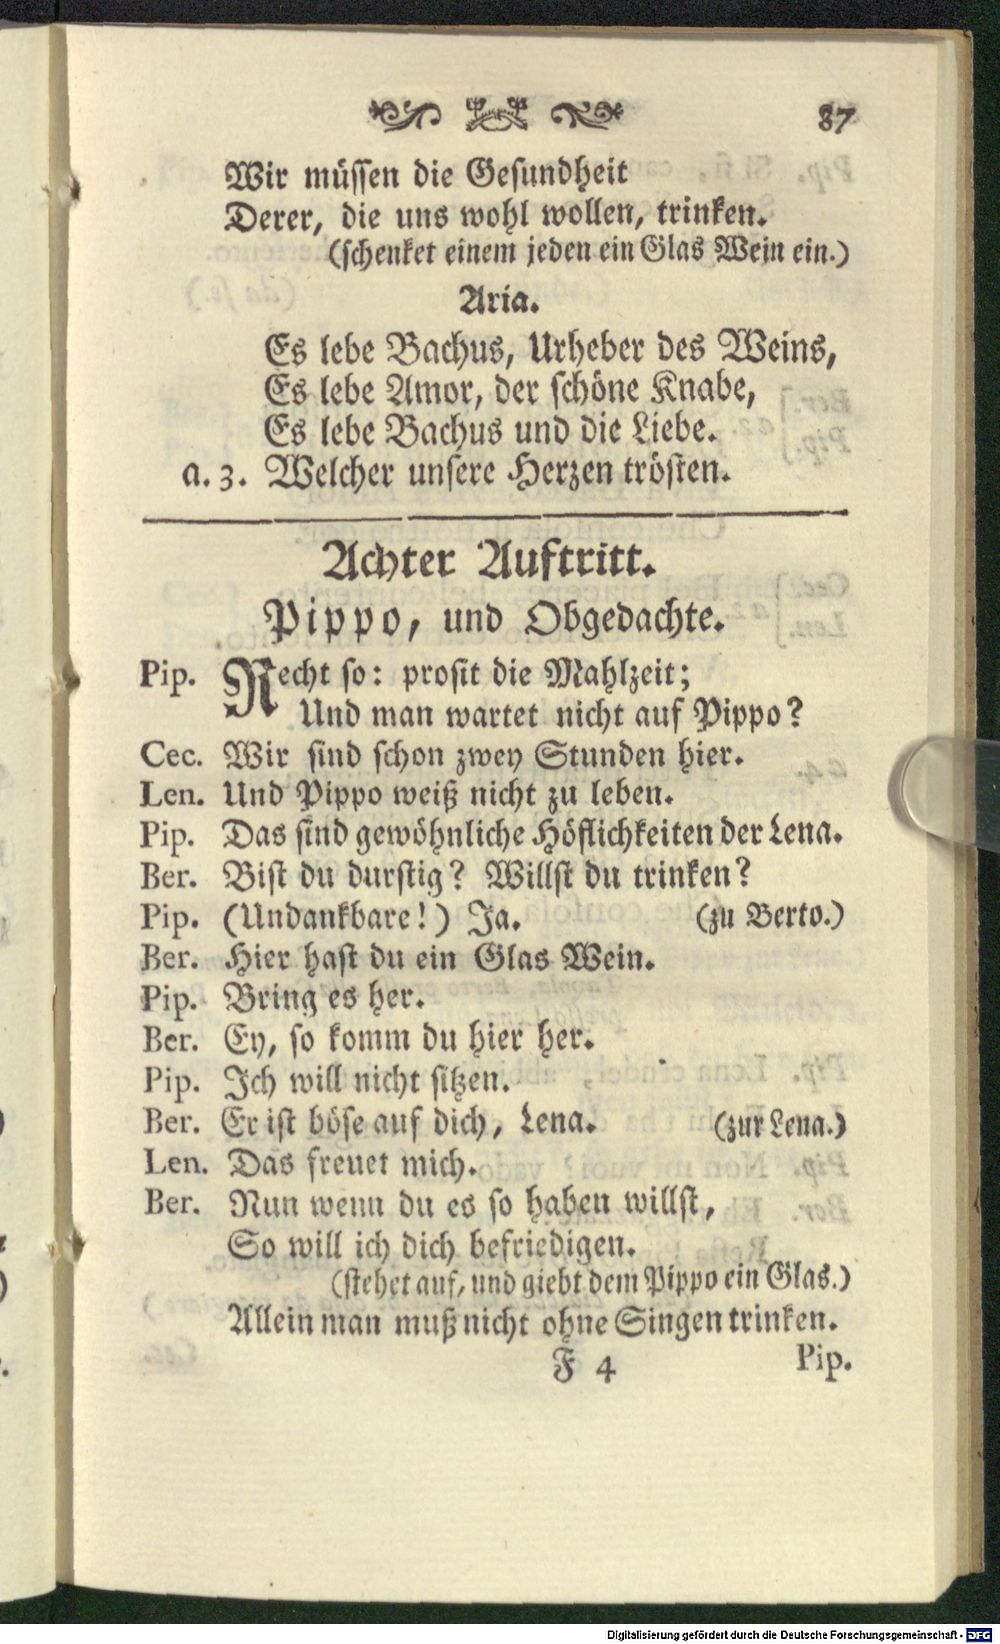 87
Wir müssen die Gesundheit
Derer, die uns wohl wollen, trinken.
(schenket einem jeden ein Glas Wein ein.)
Aria.
Es lebe Bachus, Urheber des Weins,
Es lebe Amor, der schöne Knabe,
Es lebe Bachus und die Liebe.
a. 3. Welcher unsere Herzen trösten.
Achter Auftritt.
Pippo, und Obgedachte.
Pip. Recht so: prosit die Mahlzeit;
Und man wartet nicht auf Pippo?
Cec. Wir sind schon zwey Stunden hier.
Len. Und Pippo weiß nicht zu leben.
Pip. Das sind gewöhnliche Höflichkeiten der Lena.
Ber. Bist du durstig? Willst du trinken?
Pip. (Undankbare!) Ja. (zu Berto.)
Ber. Hier hast du ein Glas Wein.
Pip. Bring es her.
Ber. Ey, so komm du hier her.
Pip. Ich will nicht sitzen.
Ber. Er ist böse auf dich, Lena. (zur Lena.)
Len. Das freuet mich.
Ber. Nun wenn du es so haben willst,
So will ich dich befriedigen.
(stehet auf, und giebt dem Pippo ein Glas.)
Allein man muß nicht ohne Singen trinken.
F 4 Pip.
Digitalisierung gefördert durch die Deutsche Forschungsgemeinschaft - DFG